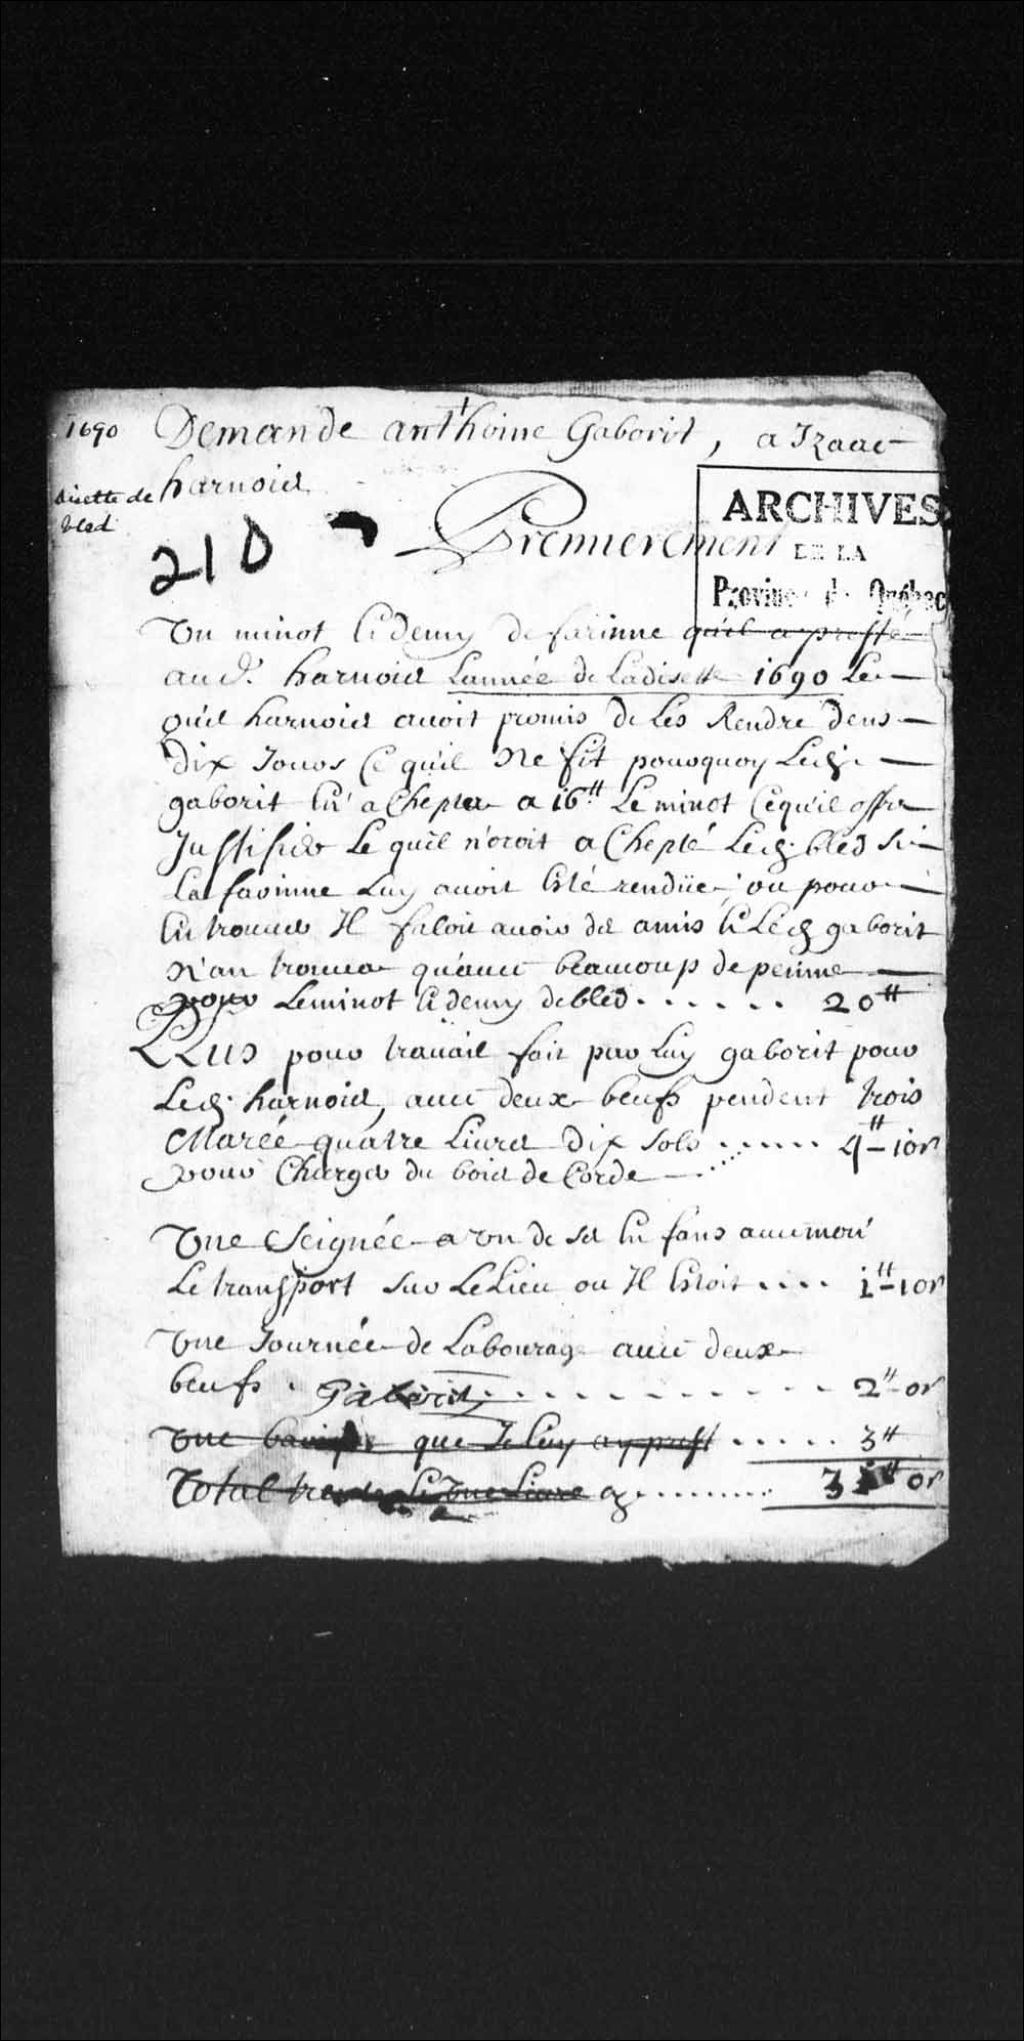 1690 Demande anthoine Gaborit, a Izaac
disette de harnois
bled
210
ARCHIVES
DE LA
Province de Québec
Premierement
Un minot et demy de farinne qu'il a presté
aud. harnois Lannée de Ladisette 1690 Le
quel harnois avoit promis de Les Rendre dens
dix Jours Ce qu'il Ne fit pourquoy Led.
gaborit En achepta a 16ᵗᵗ Le minot Ce qu'il offre
Justifier Le quel n'oroit achepté Led. bled si
La farinne Luy avoit Esté rendüe; ou pour
En trouver Il faloit avoir des amis et Led gaborit
N'an trouva qu'avec beaucoup de peinne
pour Leminot et demy de bled . . . . . . 20ᵗᵗ
Plus pour travail fait par Luy gaborit pour
Led. harnois, avec deux beufs pendent trois
Marée quatre Livres dix sols ...... 4ᵗᵗ-10s
pour Charger du bois de Corde
Une Seignée a un de ses Enfans avec moy
Le transport sur Le Lieu ou Il Estoit .... 1ᵗᵗ-10s
Une Journée de Labourage avec deux
beufs . Gaborit . . . . . . . . . . . 2ᵗᵗ-0s
Une que Je luy ay prest ..... 3ᵗᵗ
Total et Une Livre cy ......... 31ᵗᵗ 0s